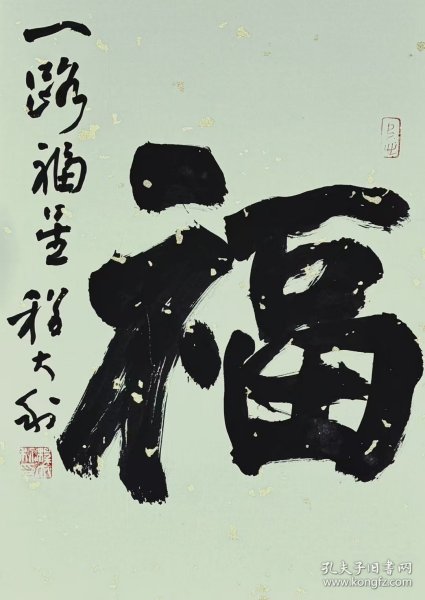 福
一路福星 程大利
孔夫子旧书网
www.kongfz.com